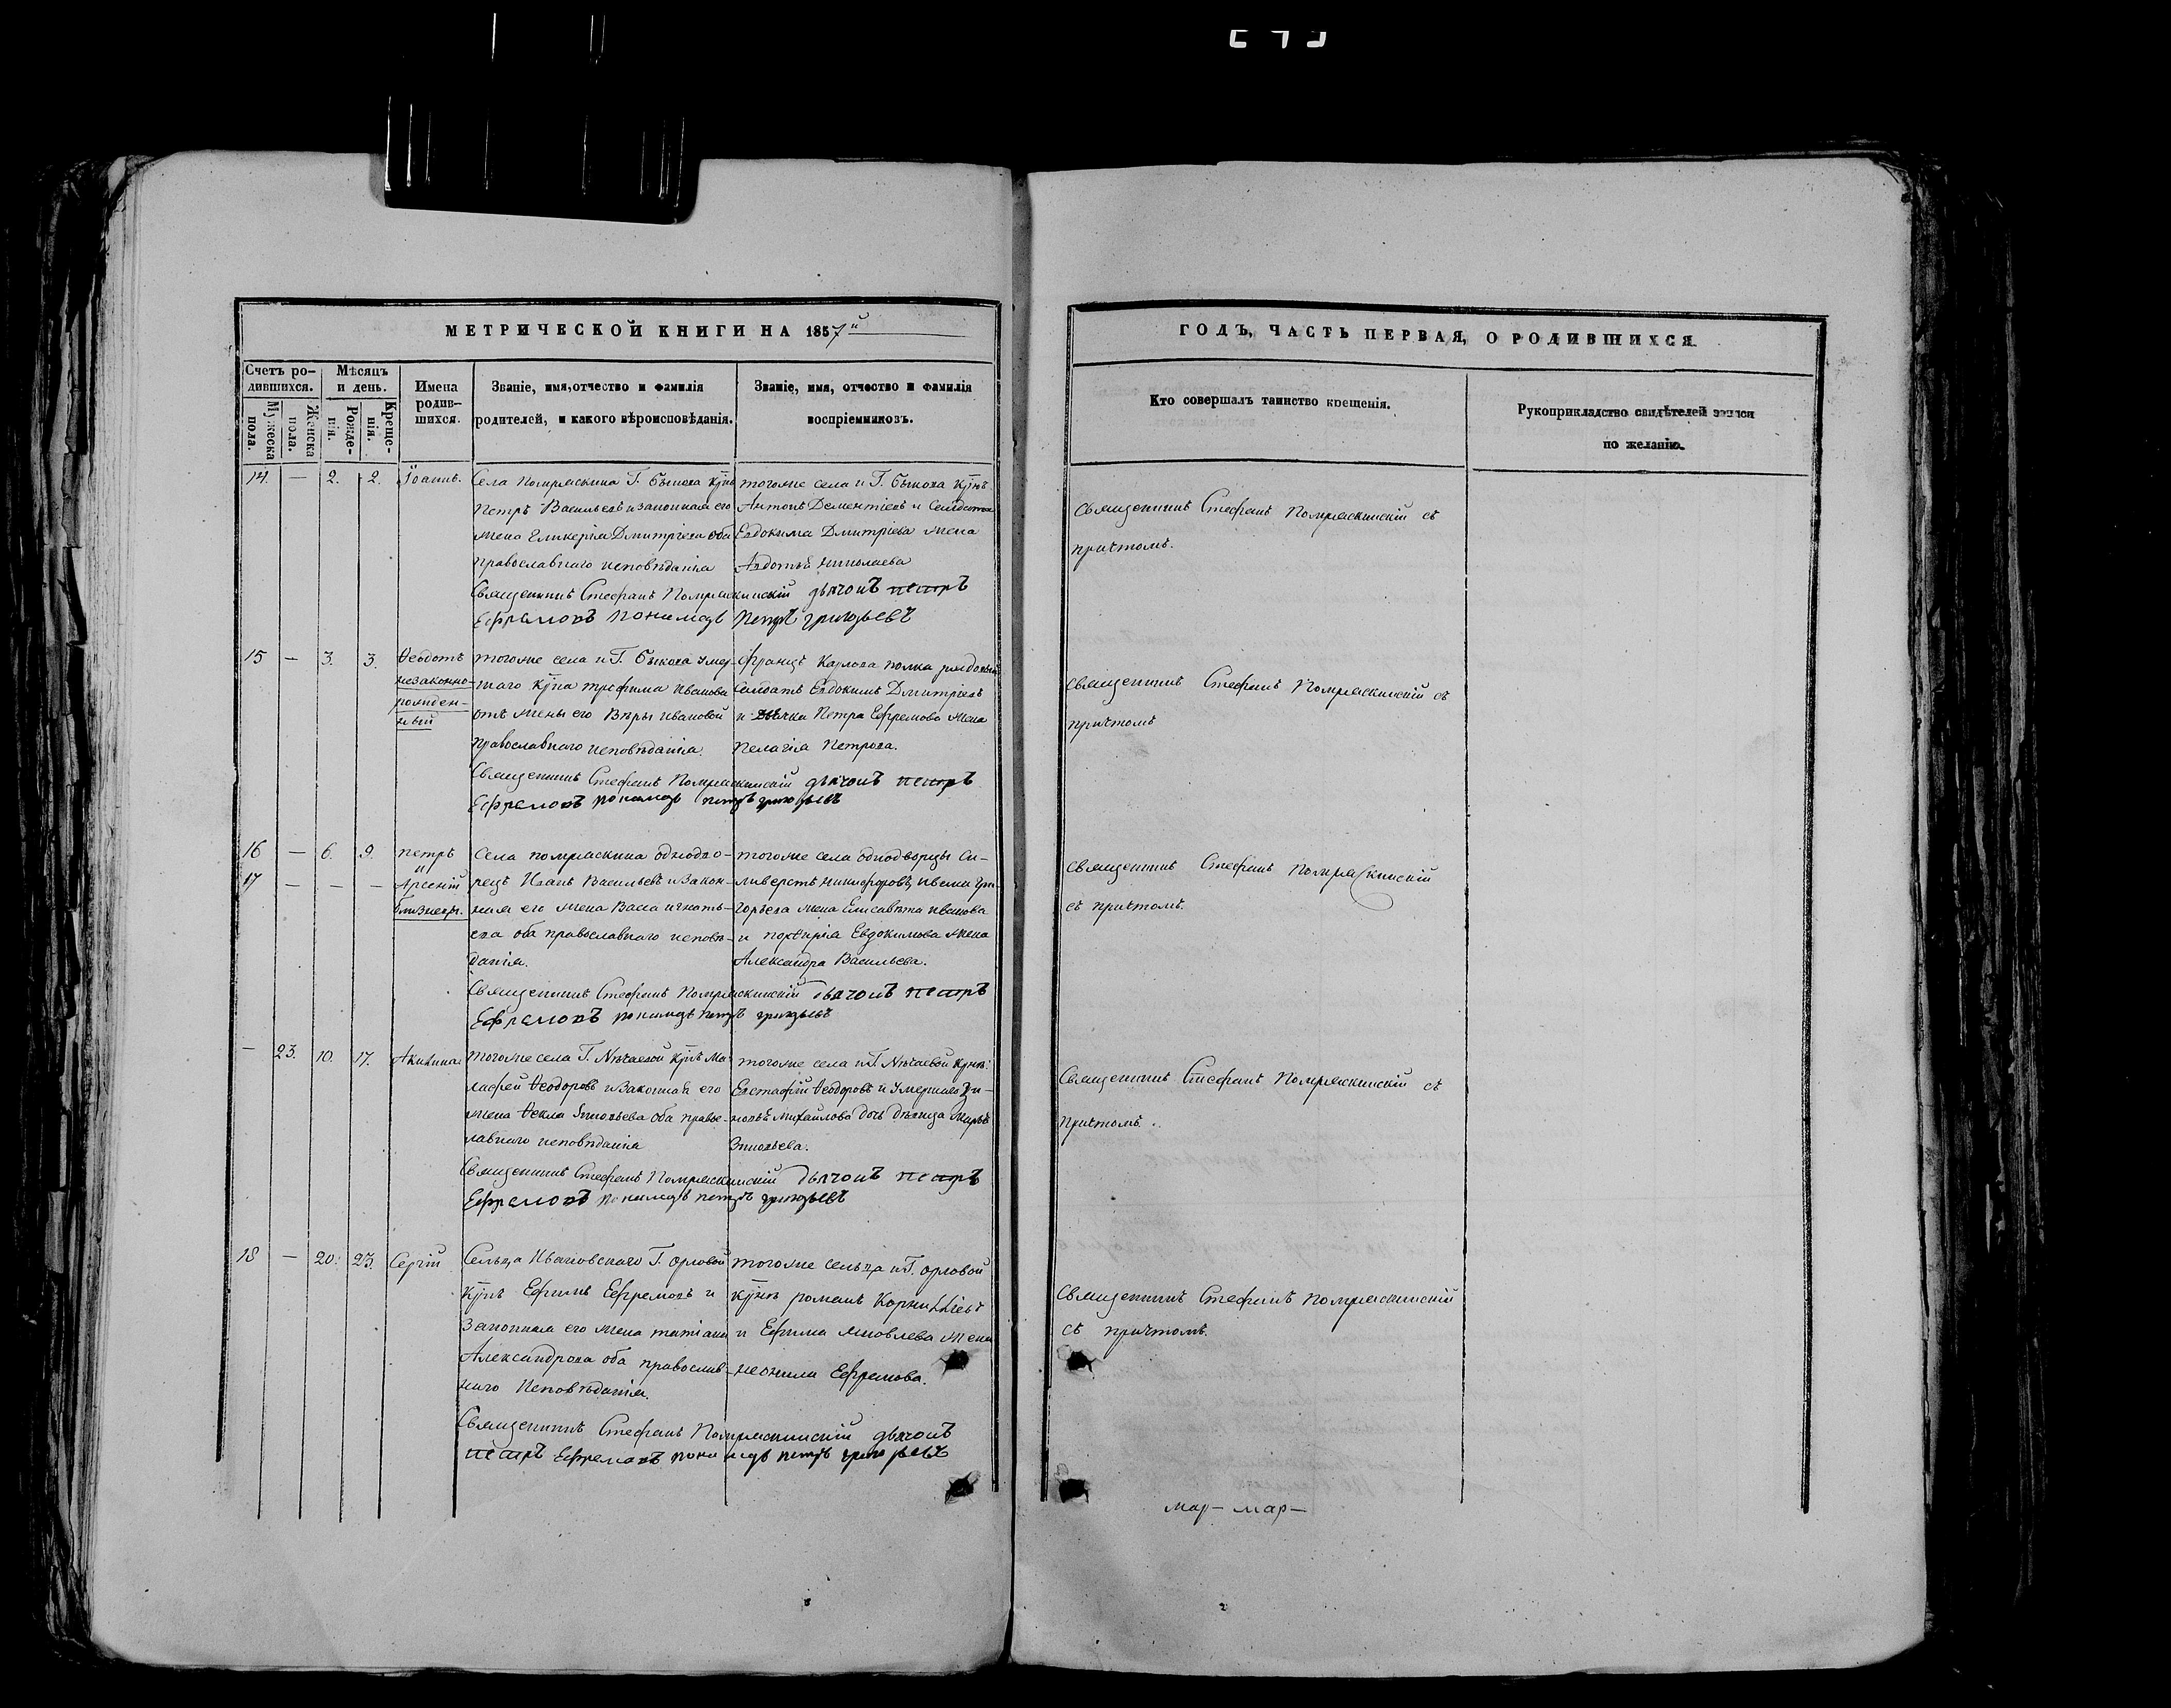 МЕТРИЧЕСКОЙ КНИГИ НА 1857й
Счетъ ро-
дившихся.
Мужеска пола.
Женска пола.
Мѣсяцъ
и день.
Рожде-
нія.
Креще-
нія.
Имена
родив-
шихся.
Званіе, имя, отчество и фамилія
родителей, и какого вѣроисповѣданія.
Званіе, имя, отчество и фамилія
воспріемниковъ.
14. — 2. 2. Іоаннъ.
Села Помряскина Г. Быкова
Петръ Васильевъ и законная его
жена Гликерія Дмитріева оба
православнаго исповѣданія
тогоже села и Г. Быкова
Антонъ Дементіевъ и
Евдокима Дмитріева жена
Авдотья Николаева
Священникъ Стефанъ Помряскинскій дьячокъ петръ
Ефремовъ пономарь Петръ григорьевъ
15 — 3. 3. Ѳеодотъ
незаконно-
рожден-
ный
тогоже села и Г. Быкова умер-
шаго трофима Иванова
отъ жены его Вѣры Ивановой
православнаго исповѣданія.
Францъ Карлова полка рядовый
Солдатъ Евдокимъ Дмитріевъ
и дьячка Петра Ефремова жена
Пелагія Петрова.
Священникъ Стефанъ Помряскинскій дьячокъ петръ
Ефремовъ пономарь петръ григорьевъ
16 — 6. 9. Петръ
и
17 — — — Арсеній
близнецы.
Села помряскина однодво-
рецъ Иванъ Васильевъ и закон-
ная его жена Васса игнать-
ева оба православнаго исповѣ-
данія.
тогоже села однодворцы Си-
ливерстъ Никифоровъ, Ивана Гри-
горьева жена Елисавета Иванова
и Порѳирія Евдокимова жена
Александра Васильева.
Священникъ Стефанъ Помряскинскій дьячокъ петръ
Ефремовъ пономарь петръ григорьевъ
— 23. 10. 17. Акилина
тогоже села Г. Нѣчаевой
Ѳеодоровъ и законная его
жена Ѳекла Зиновьева оба правос-
лавнаго исповѣданія
тогоже села и Г. Нѣчаевой
Евстафій Ѳеодоровъ и умершаго Зи-
новья Михайлова дочь дѣвица Марѳа
Зиновьева.
Священникъ Стефанъ Помряскинскій дьячокъ петръ
Ефремовъ пономарь петръ григорьевъ
18 — 20. 23. Сергій
Сельца Ивановскаго Г. Орловой
Ефимъ Ефремовъ и
Законная его жена татіана
Александрова оба православ-
наго Исповѣданія.
тогоже сельца и Г. Орловой
романъ Корниліевъ
и Ефима Яковлева жена
Неонила Ефремова.
Священникъ Стефанъ Помряскинскій дьячокъ
петръ Ефремовъ пономарь петръ григорьевъ
ГОДЪ, ЧАСТЬ ПЕРВАЯ, О РОДИВШИХСЯ.
Кто совершалъ таинство крещенія.
Рукоприкладство свидѣтелей записи
по желанію.
Священникъ Стефанъ Помряскинскій съ
причтомъ.
Священникъ Стефанъ Помряскинскій съ
причтомъ
Священникъ Стефанъ Помряскинскій
съ причтомъ.
Священникъ Стефанъ Помряскинскій съ
Причтомъ.
Священникъ Стефанъ Помряскинскій
съ причтомъ.
мар— мар—